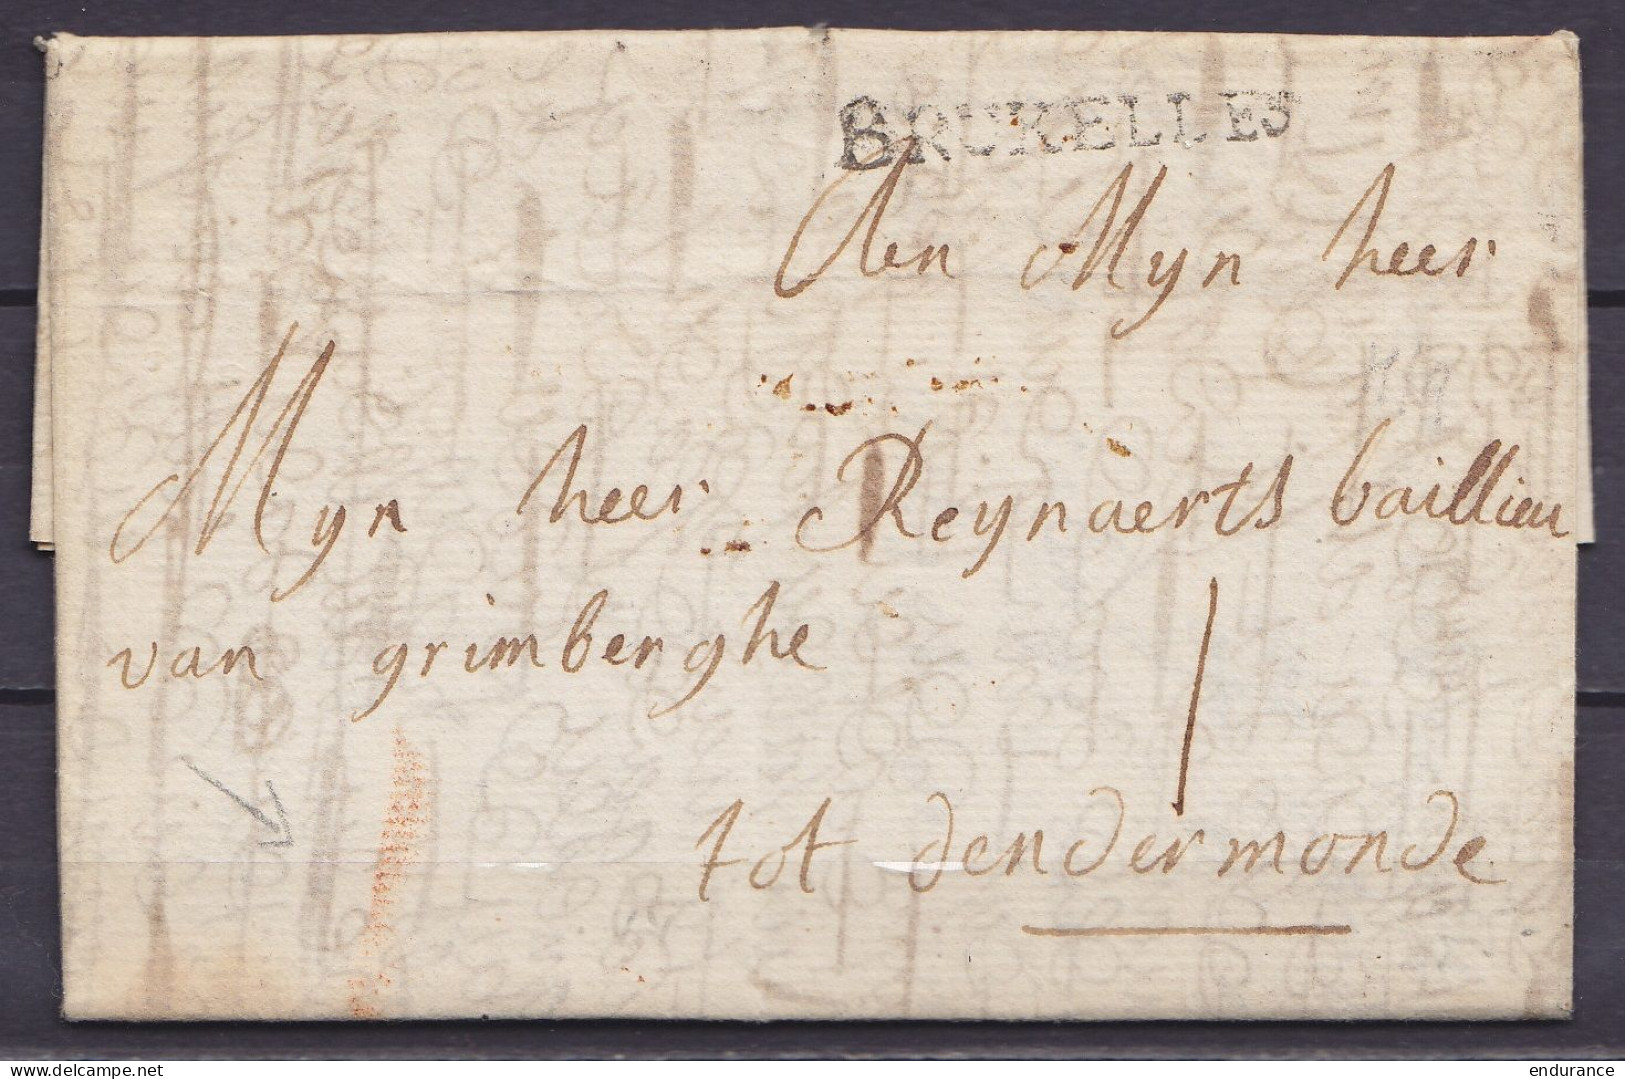 BRUXELLES
Aen Myn heer
Myn heer Reynaerts baillieu
van grimberghe
1
tot dendermonde
delcampe.net
endurance